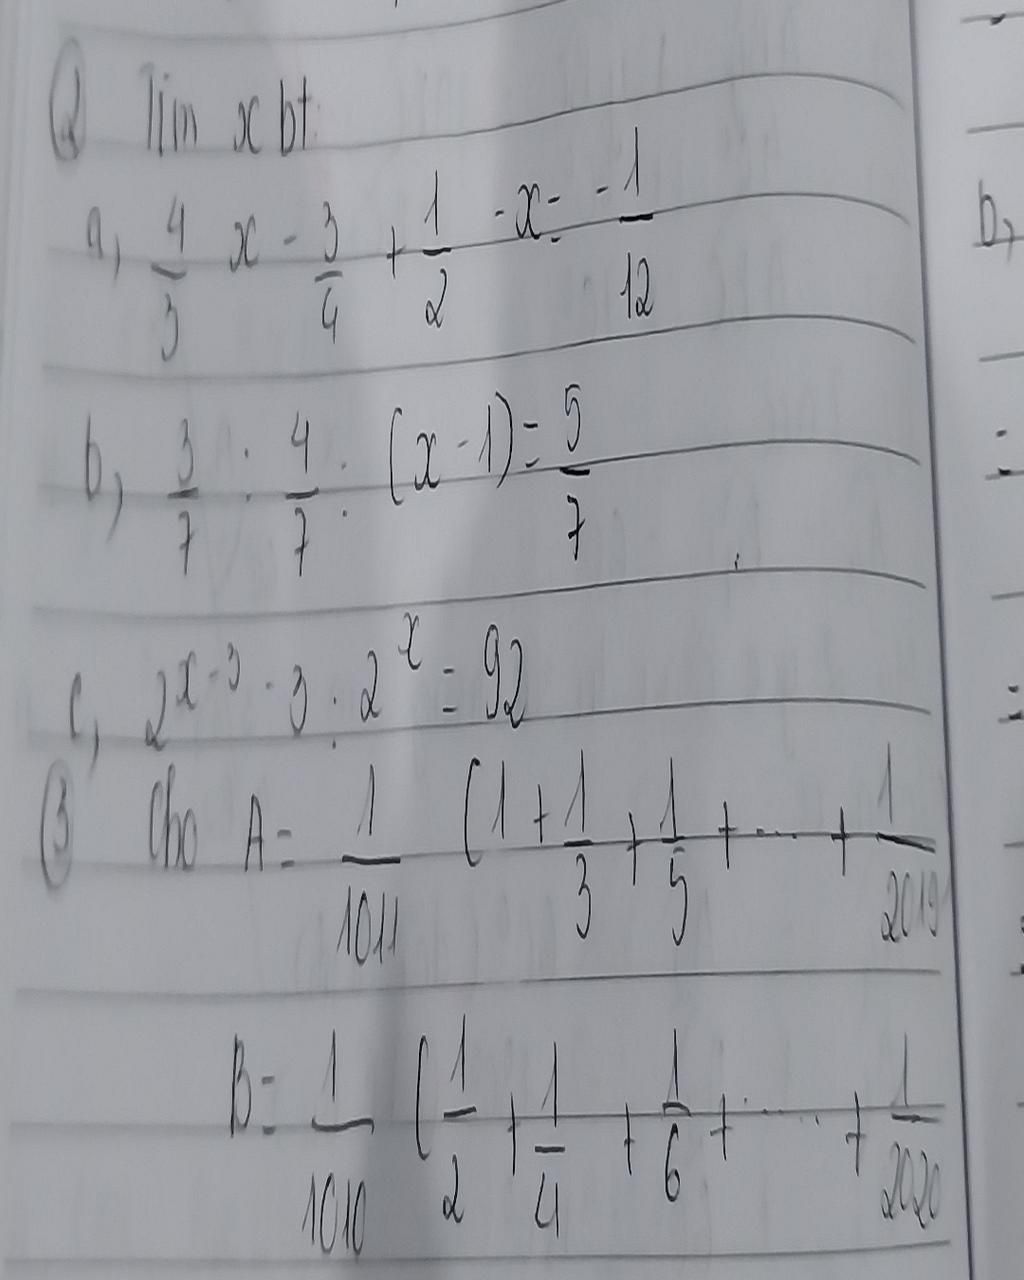 ② Tìm x bt:
a, 4/3 x - 3/4 + 1/2 - x = -1/12
b, 3/7 : 4/7 : (x - 1) = 5/7
c, 2^{x-3} - 3 . 2^x = 92
③ Cho A = 1/1011 (1 + 1/3 + 1/5 + .... + 1/2019
B = 1/1010 (1/2 + 1/4 + 1/6 + ...... + 1/2020
b,